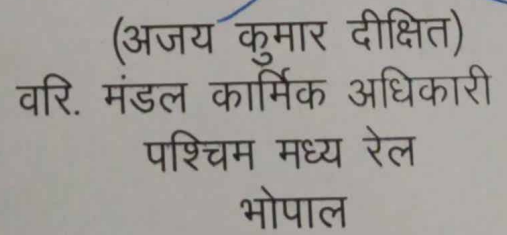 (अजय कुमार दीक्षित)
वरि. मंडल कार्मिक अधिकारी
पश्चिम मध्य रेल
भोपाल